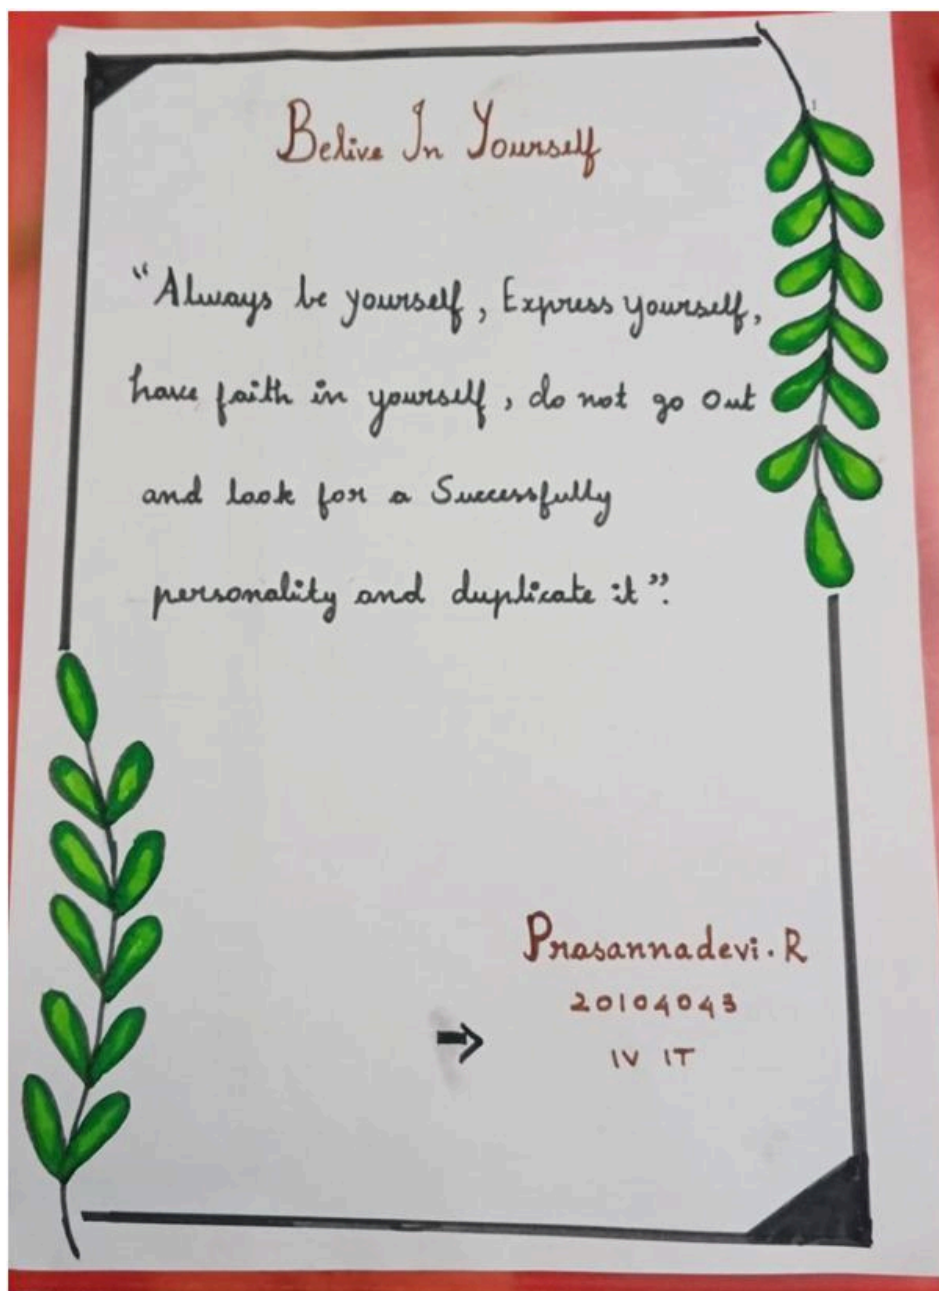 Belive In Yourself
"Always be yourself, Express yourself,
have faith in yourself, do not go Out
and look for a Successfully
personality and duplicate it".
Prasannadevi. R
20104043
IV IT